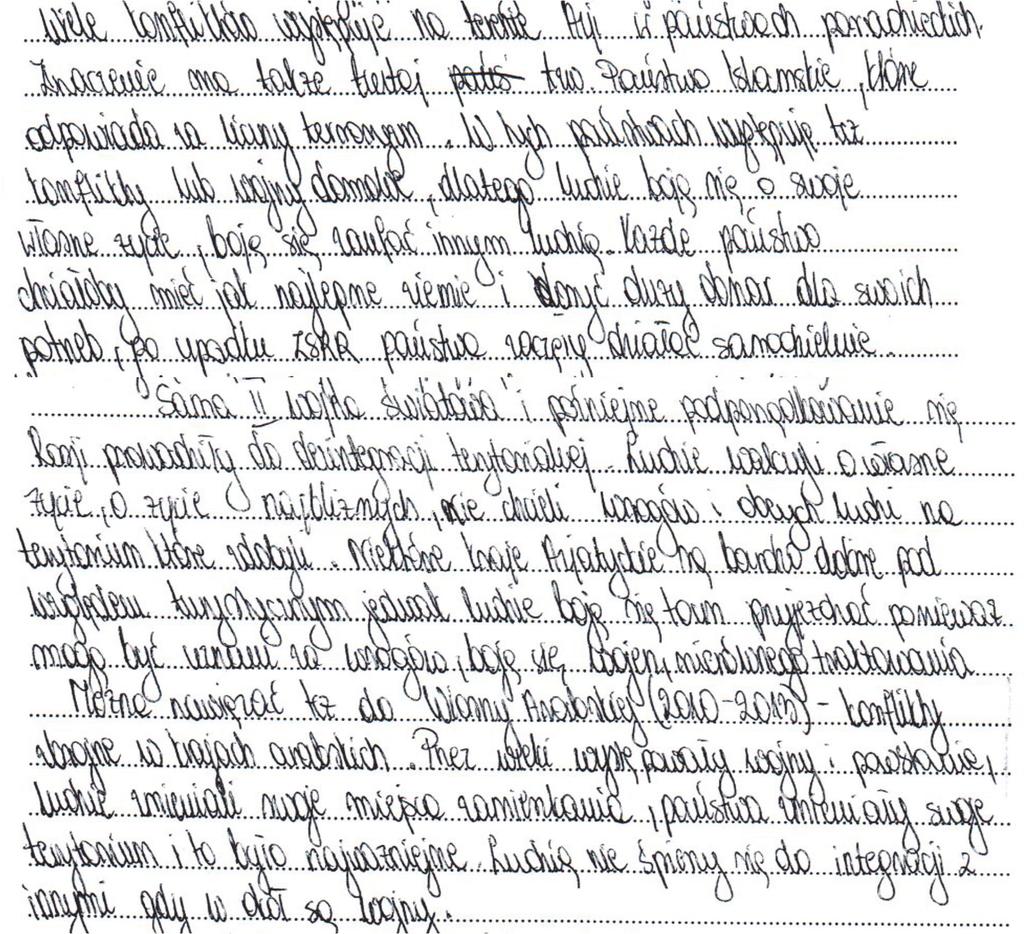 Wiele konfliktów występuje na terenie Azji w państwach poradzieckich.
Znaczenie ma także tutaj tzw. Państwo Islamskie, które
odpowiada za liczny terroryzm. W tych państwach występuję też
konflikty lub wojny domowe, dlatego ludzie boję się o swoje
własne życie, boję się zaufać innym ludzią. Każde państwo
chciałoby mieć jak najlepsze ziemie i duży obszar dla swoich
potrzeb, po upadku ZSRR państwa zaczęły działać samodzielnie.
Sama II wojna światowa i późniejsze podporządkowanie się
Rosji prowadziły do dezintegracji terytorialnej. Ludzie walczyli o własne
życie, o życie najbliższych, nie chcieli wrogów i obcych ludzi na
terytorium które zdobyli. Niektóre kraje Azjatyckie są bardzo dobre pod
względem turystycznym jednak ludzie boję się tam przyjeżdżać ponieważ
mogą być uznani za wrogów, boję się wojen, nierównego traktowania
Można nawięzać też do Wiosny Arabskiej (2010-2013) - konflikty
zbrojne w krajach arabskich. Przez wieki występowały wojny i powstanie,
ludzie zmieniali swoje miejsca zamieszkania, państwa zmieniały swoje
terytorium i to było najważniejsze. Ludzię nie śpieszy się do integracji z
innymi gdy w okół są wojny.